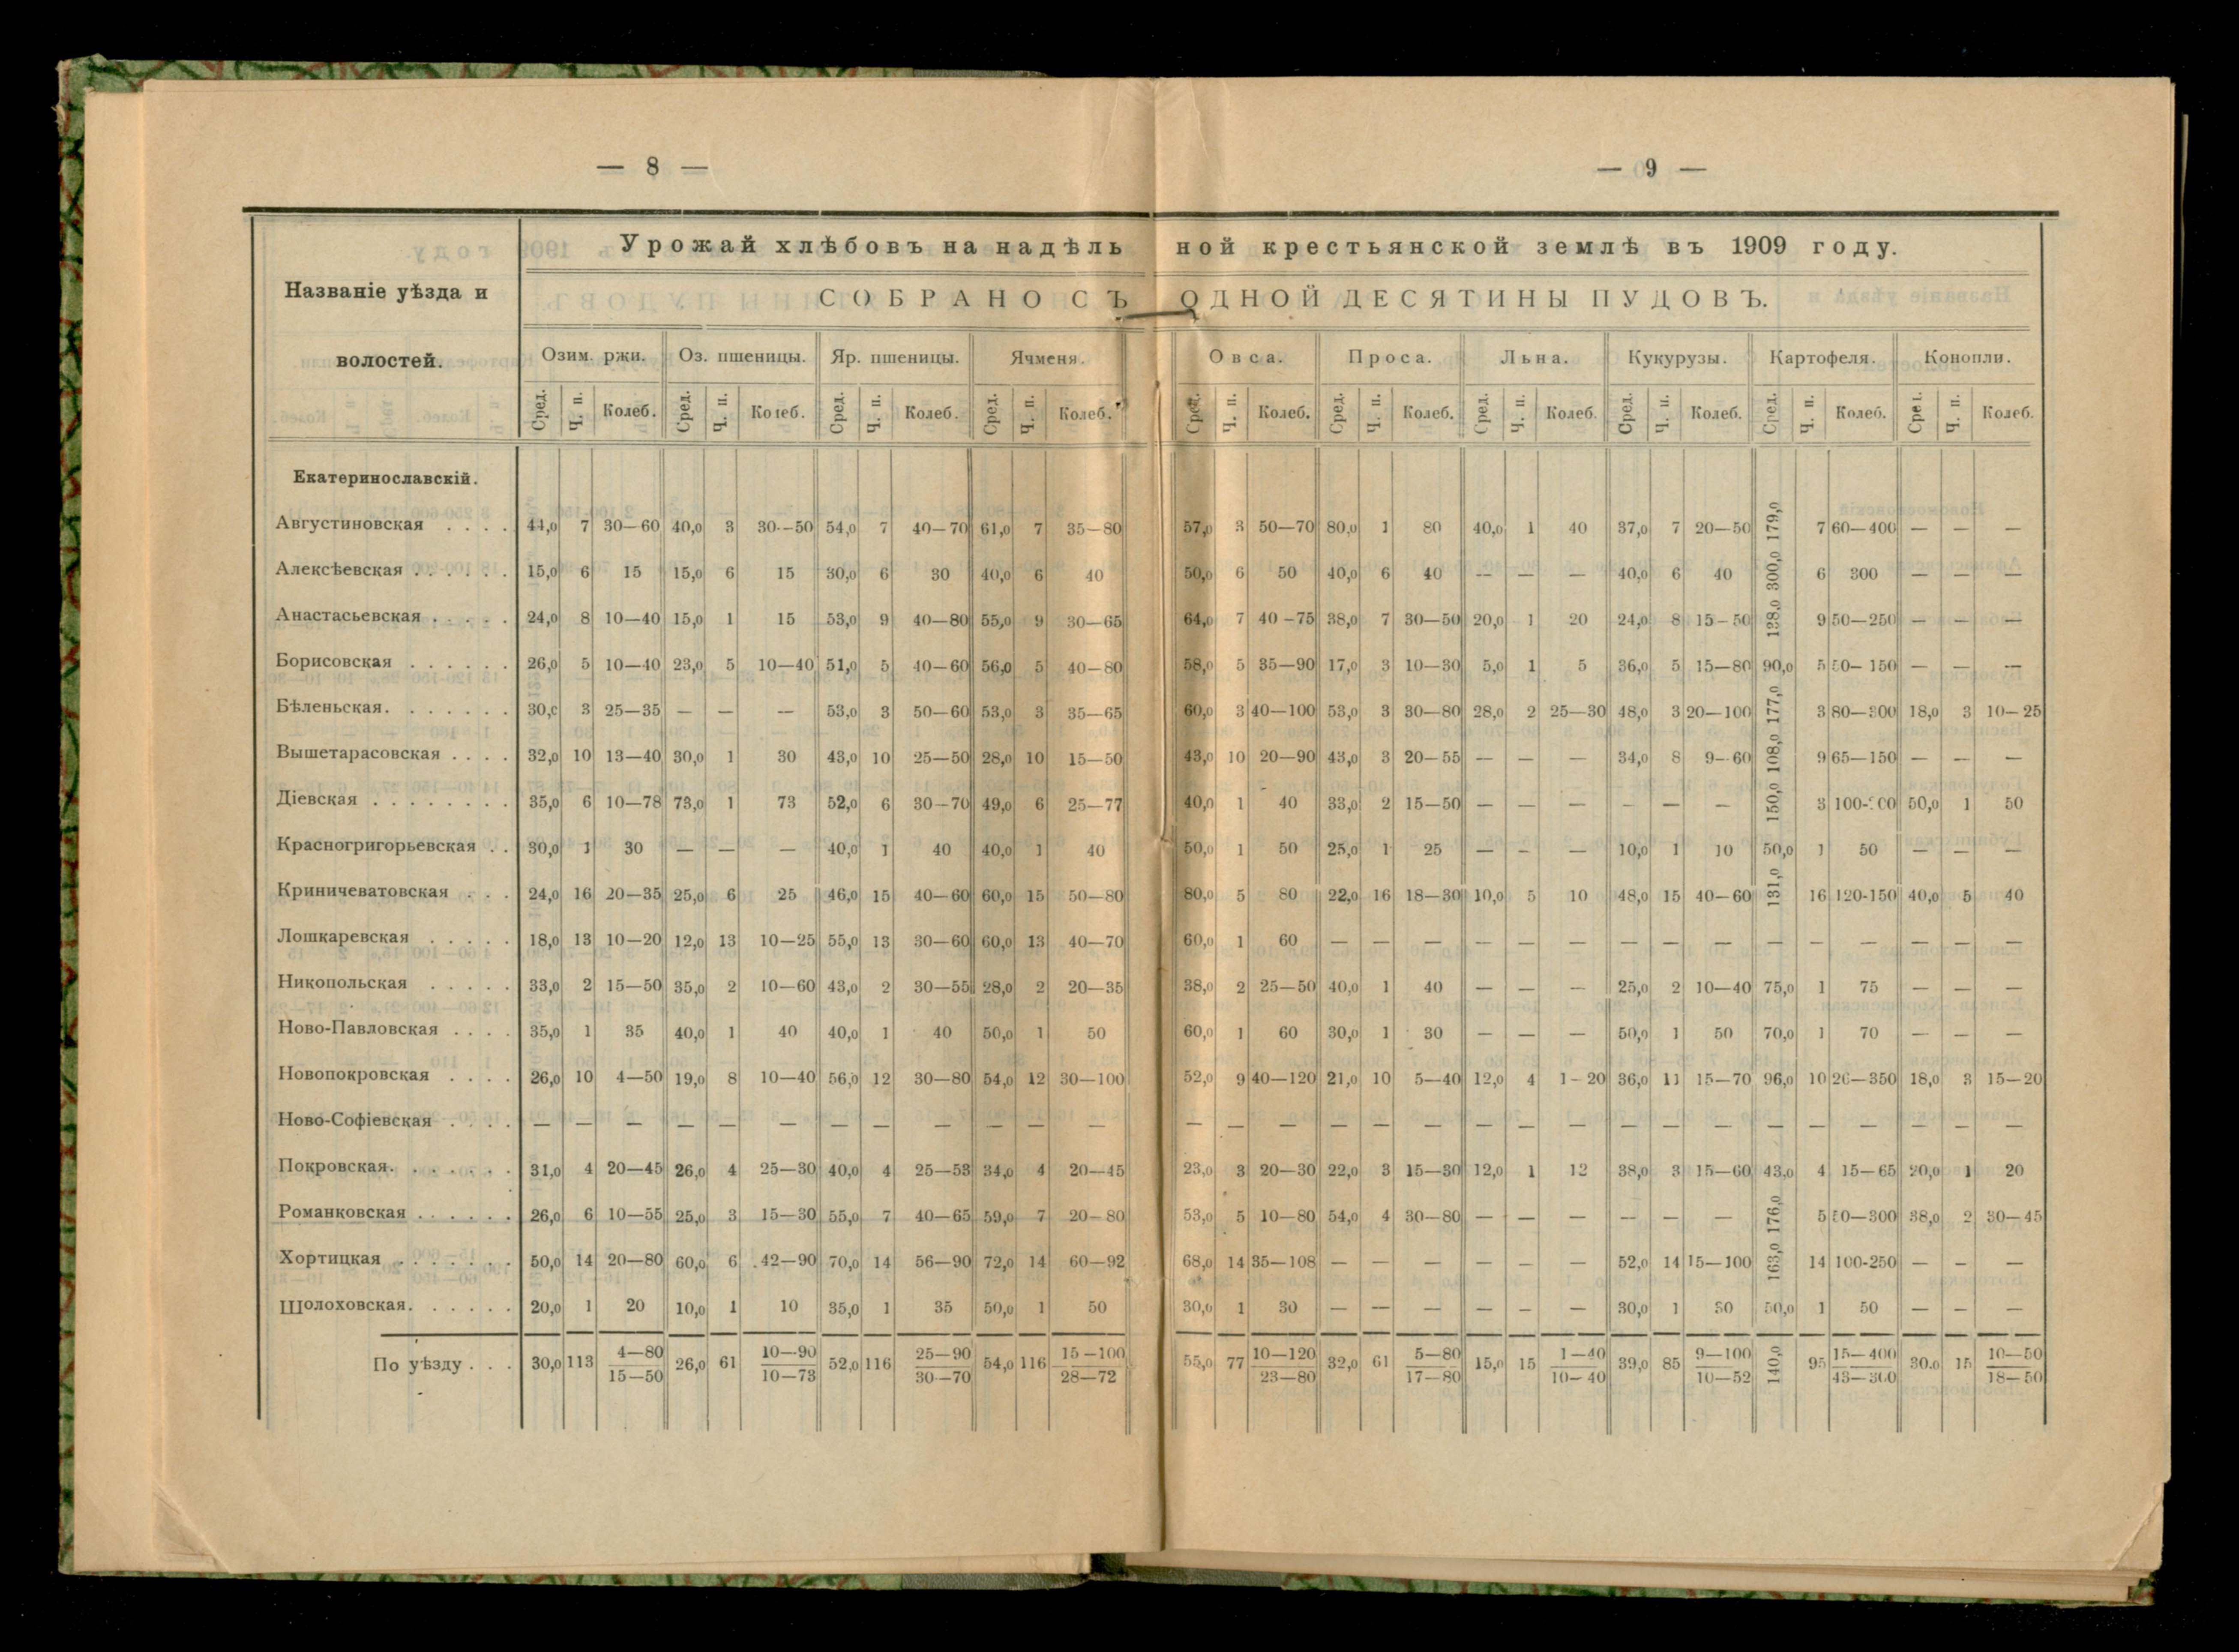 — 8 —
— 9 —
Названіе уѣзда и волостей.
Урожай хлѣбовъ на надѣльной крестьянской землѣ въ 1909 году.
СОБРАНО СЪ ОДНОЙ ДЕСЯТИНЫ ПУДОВЪ.
Озим. ржи. Оз. пшеницы. Яр. пшеницы. Ячменя. Овса. Проса. Льна. Кукурузы. Картофеля. Конопли.
Сред. Ч. п. Колеб. Сред. Ч. п. Колеб. Сред. Ч. п. Колеб. Сред. Ч. п. Колеб. Сред. Ч. п. Колеб. Сред. Ч. п. Колеб. Сред. Ч. п. Колеб. Сред. Ч. п. Колеб. Сред. Ч. п. Колеб. Сред. Ч. п. Колеб.
Екатеринославскій.
Августиновская . . . . 44,0 7 30—60 40,0 3 30—50 54,0 7 40—70 61,0 7 35—80 57,0 3 50—70 80,0 1 80 40,0 1 40 37,0 7 20—50 179,0 7 60—400 — — —
Алексѣевская . . . . . . 15,0 6 15 15,0 6 15 30,0 6 30 40,0 6 40 50,0 6 50 40,0 6 40 — — — 40,0 6 40 300,0 6 300 — — —
Анастасьевская . . . . . 24,0 8 10—40 15,0 1 15 53,0 9 40—80 55,0 9 30—65 64,0 7 40—75 38,0 7 30—50 20,0 1 20 24,0 8 15—50 138,0 9 50—250 — — —
Борисовская . . . . . . 26,0 5 10—40 23,0 5 10—40 51,0 5 40—60 56,0 5 40—80 58,0 5 35—90 17,0 3 10—30 5,0 1 5 36,0 5 15—80 90,0 5 50—150 — — —
Бѣленьская. . . . . . . 30,0 3 25—35 — — — 53,0 3 50—60 53,0 3 35—65 60,0 3 40—100 53,0 3 30—80 28,0 2 25—30 48,0 3 20—100 177,0 3 80—300 18,0 3 10—25
Вышетарасовская . . . . 32,0 10 13—40 30,0 1 30 43,0 10 25—50 28,0 10 15—50 43,0 10 20—90 43,0 3 20—55 — — — 34,0 8 9—60 108,0 9 65—150 — — —
Діевская . . . . . . . . 35,0 6 10—78 73,0 1 73 52,0 6 30—70 49,0 6 25—77 40,0 1 40 33,0 2 15—50 — — — — — — 150,0 3 50,0 1 50
Красногригорьевская . . 30,0 1 30 — — — 40,0 1 40 40,0 1 40 50,0 1 50 25,0 1 25 — — — 10,0 1 10 50,0 1 50 — — —
Криничеватовская . . . 24,0 16 20—35 25,0 6 25 46,0 15 40—60 60,0 15 50—80 80,0 5 80 22,0 16 18—30 10,0 5 10 48,0 15 40—60 131,0 16 120-150 40,0 5 40
Лошкаревская . . . . . 18,0 13 10—20 12,0 13 10—25 55,0 13 30—60 60,0 13 40—70 60,0 1 60 — — — — — — — — — — — — — — —
Никопольская . . . . . 33,0 2 15—50 35,0 2 10—60 43,0 2 30—55 28,0 2 20—35 38,0 2 25—50 40,0 1 40 — — — 25,0 2 10—40 75,0 1 75 — — —
Ново-Павловская . . . . 35,0 1 35 40,0 1 40 40,0 1 40 50,0 1 50 60,0 1 60 30,0 1 30 — — — 50,0 1 50 70,0 1 70 — — —
Новопокровская . . . . 26,0 10 4—50 19,0 8 10—40 56,0 12 30—80 54,0 12 30—100 52,0 9 40—120 21,0 10 5—40 12,0 4 1—20 36,0 11 15—70 96,0 10 20—350 18,0 3 15—20
Ново-Софіевская . . . . — — — — — — — — — — — — — — — — — — — — — — — — — — — — — —
Покровская. . . . . . . 31,0 4 20—45 26,0 4 25—30 40,0 4 25—53 34,0 4 20—45 23,0 3 20—30 22,0 3 15—30 12,0 1 12 38,0 3 15—60 43,0 4 15—65 20,0 1 20
Романковская . . . . . . 26,0 6 10—55 25,0 3 15—30 55,0 7 40—65 59,0 7 20—80 53,0 5 10—80 54,0 4 30—80 — — — — — — 176,0 5 50—300 38,0 2 30—45
Хортицкая . . . . . . . 50,0 14 20—80 60,0 6 42—90 70,0 14 56—90 72,0 14 60—92 68,0 14 35—108 — — — — — — 52,0 14 15—100 163,0 14 100-250 — — —
Шолоховская. . . . . . 20,0 1 20 10,0 1 10 35,0 1 35 50,0 1 50 30,0 1 30 — — — — — — 30,0 1 30 50,0 1 50 — — —
По уѣзду . . . 30,0 113 4—80 15—50 26,0 61 10—90 10—73 52,0 116 25—90 30—70 54,0 116 15—100 28—72 55,0 77 10—120 23—80 32,0 61 5—80 17—80 15,0 15 1—40 10—40 39,0 85 9—100 10—52 140,0 95 15—400 43—300 30,0 15 10—50 18—50